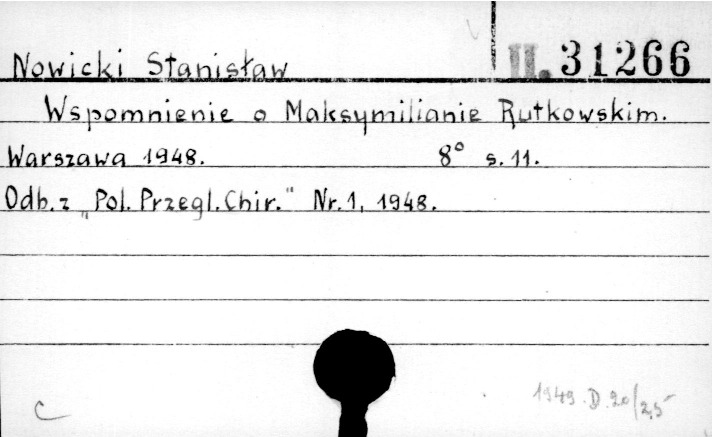 Nowicki Stanisław II. 31266
Wspomnienie o Maksymilianie Rutkowskim.
Warszawa 1948. 8° s. 11.
Odb. z „Pol. Przegl. Chir." Nr. 1, 1948.
c 1949. D. 20/2,5